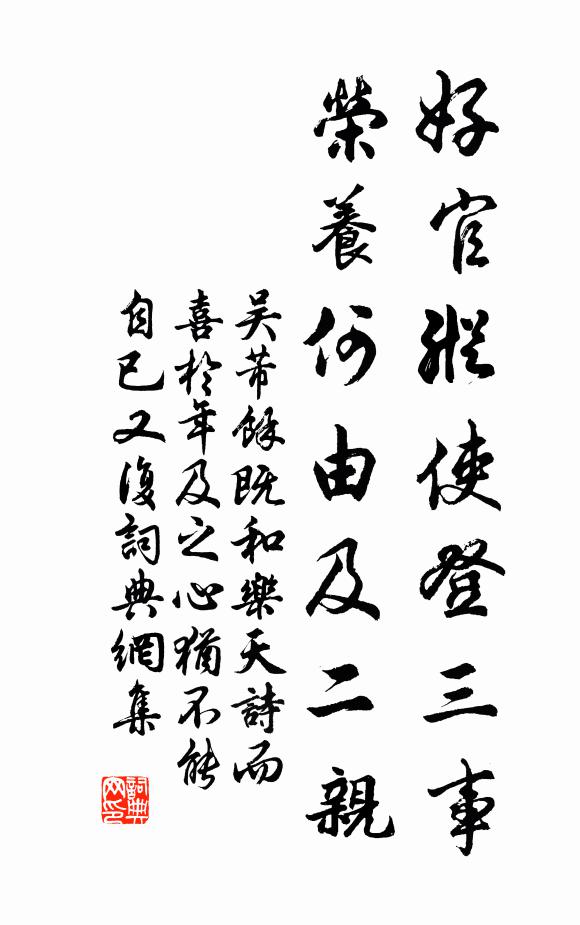 好官縱使登三事
榮養何由及二親
吴芾餘既和樂天詩而
喜於年及之心猶不能
自已又復詞典網集
詞典网印